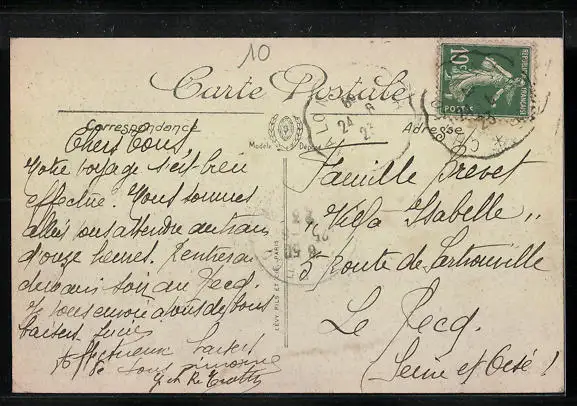 10
Carte Postale
Correspondance
Modèle Déposé
Adresse
RÉPUBLIQUE FRANÇAISE
10c
POSTES
Chers Tous,
Votre voyage s'est bien
effectué. Nous sommes
allés vous attendre au train
d'onze heures. Rentrera
demain soir au Pecq.
vous envoie à tous de bons
baisers
Affectueux baisers
à tous
LÉVY FILS ET CIE, PARIS
Famille Prevet
Villa Isabelle
5 Route de Sartrouville
Le Pecq.
Seine et Oise !